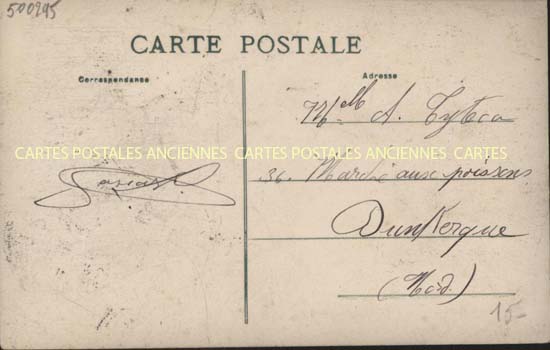 500295
CARTE POSTALE
Correspondance
Adresse
Melle A. Cytea
CARTES POSTALES ANCIENNES CARTES POSTALES ANCIENNES CARTES
36. Marché aux poissons
Dunkerque
(Nord.)
15-